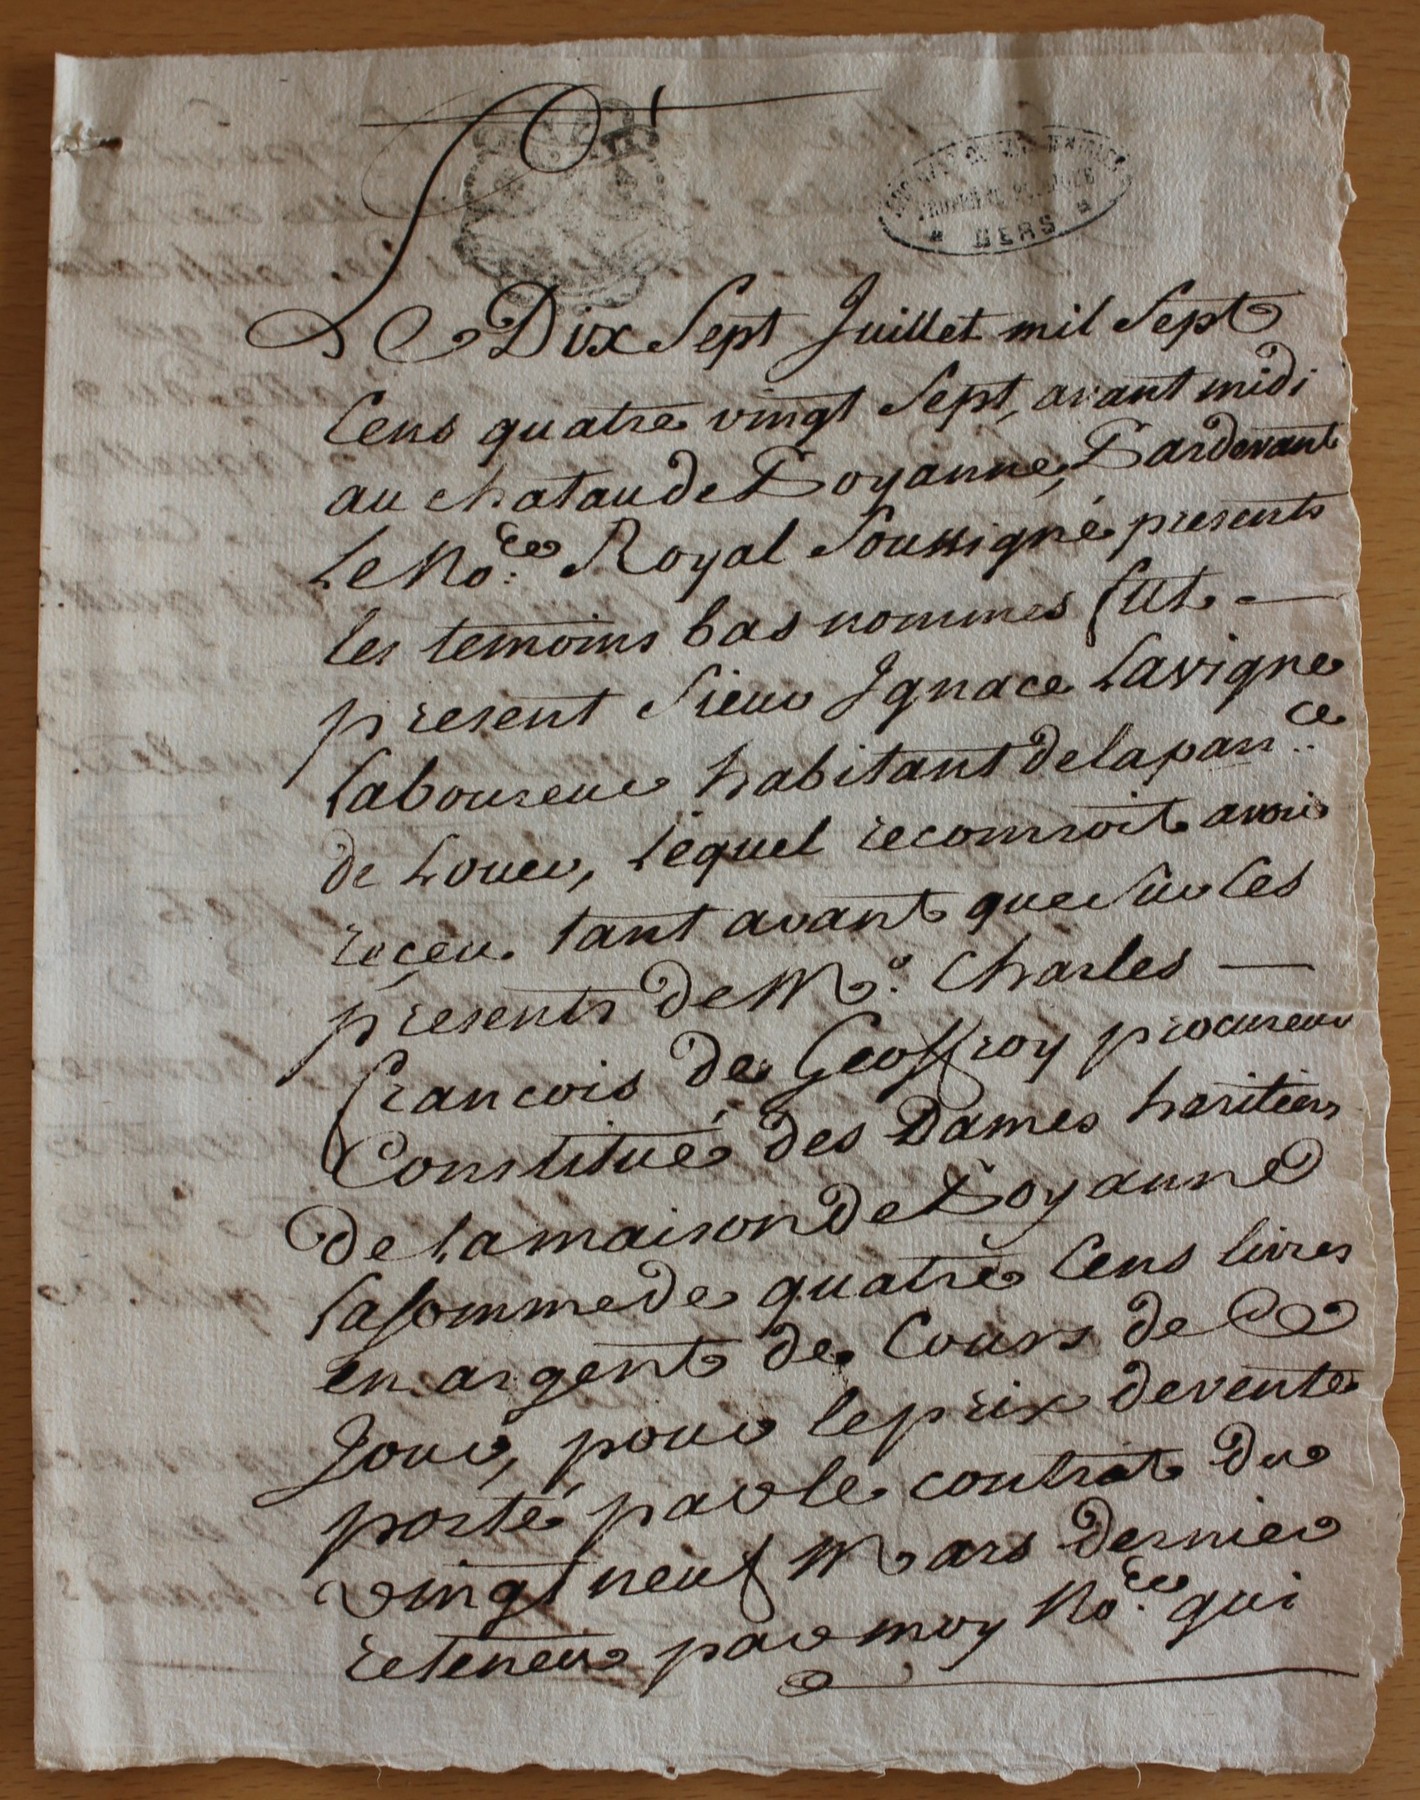 GERS
Le Dix Sept Juillet mil Sept
Cens quatre vingt Sept, avant midi
au chataude Poyanne, Pardevant
Le No.re Royal Soussigné presents
les temoins bas nommes fut
present Sieur Ignace Lavigne
Laboureur habitant de la par.ce
de Louer, Lequel reconnoit avoir
reçeu tant avant que sur Les
presents de Mr. Charles
françois de Geoffroy procureur
Constitué des Dames haritiers
de La maison de Poyanne
La somme de quatre Cens livres
en argent de Cours de Ce
Jour, pour le prix de vente
porté par le contrat du
vingt neuf Mars dernier
reteneu par moy No.re qui